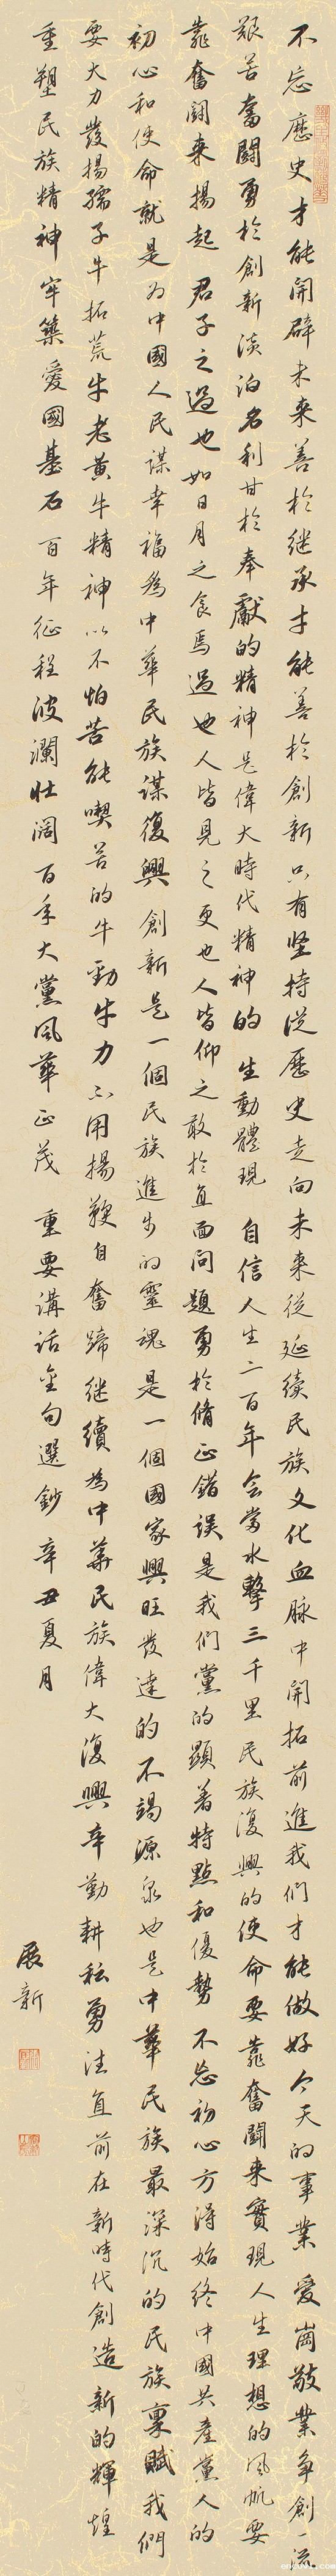 不忘歷史才能開辟未来善於继承才能善於創新只有坚持從歷史走向未来從延續民族文化血脉中開拓前進我们才能做好今天的事業爱崗敬業争創一流
艰苦奮鬪勇於創新淡泊名利甘於奉獻的精神是偉大時代精神的生動體現自信人生二百年会當水擊三千里民族復興的使命要靠奮鬪来實現人生理想的风帆要
靠奮鬪来揚起君子之過也如日月之食焉過也人皆見之更也人皆仰之敢於直面问題勇於脩正錯误是我们黨的顯著特點和優勢不忘初心方得始终中國共產黨人的
初心和使命就是为中國人民謀幸福為中華民族謀復興創新是一個民族進步的靈魂是一個國家興旺發達的不竭源泉也是中華民族最深沉的民族禀賦我們
要大力發揚孺子牛拓荒牛老黄牛精神以不怕苦能喫苦的牛勁牛力不用揚鞭自奮蹄继續為中華民族偉大復興辛勤耕耘勇往直前在新時代創造新的輝煌
重塑民族精神牢築愛國基石百年征程波瀾壯阔百年大黨风華正茂重要講话金句選鈔辛丑夏月
展新